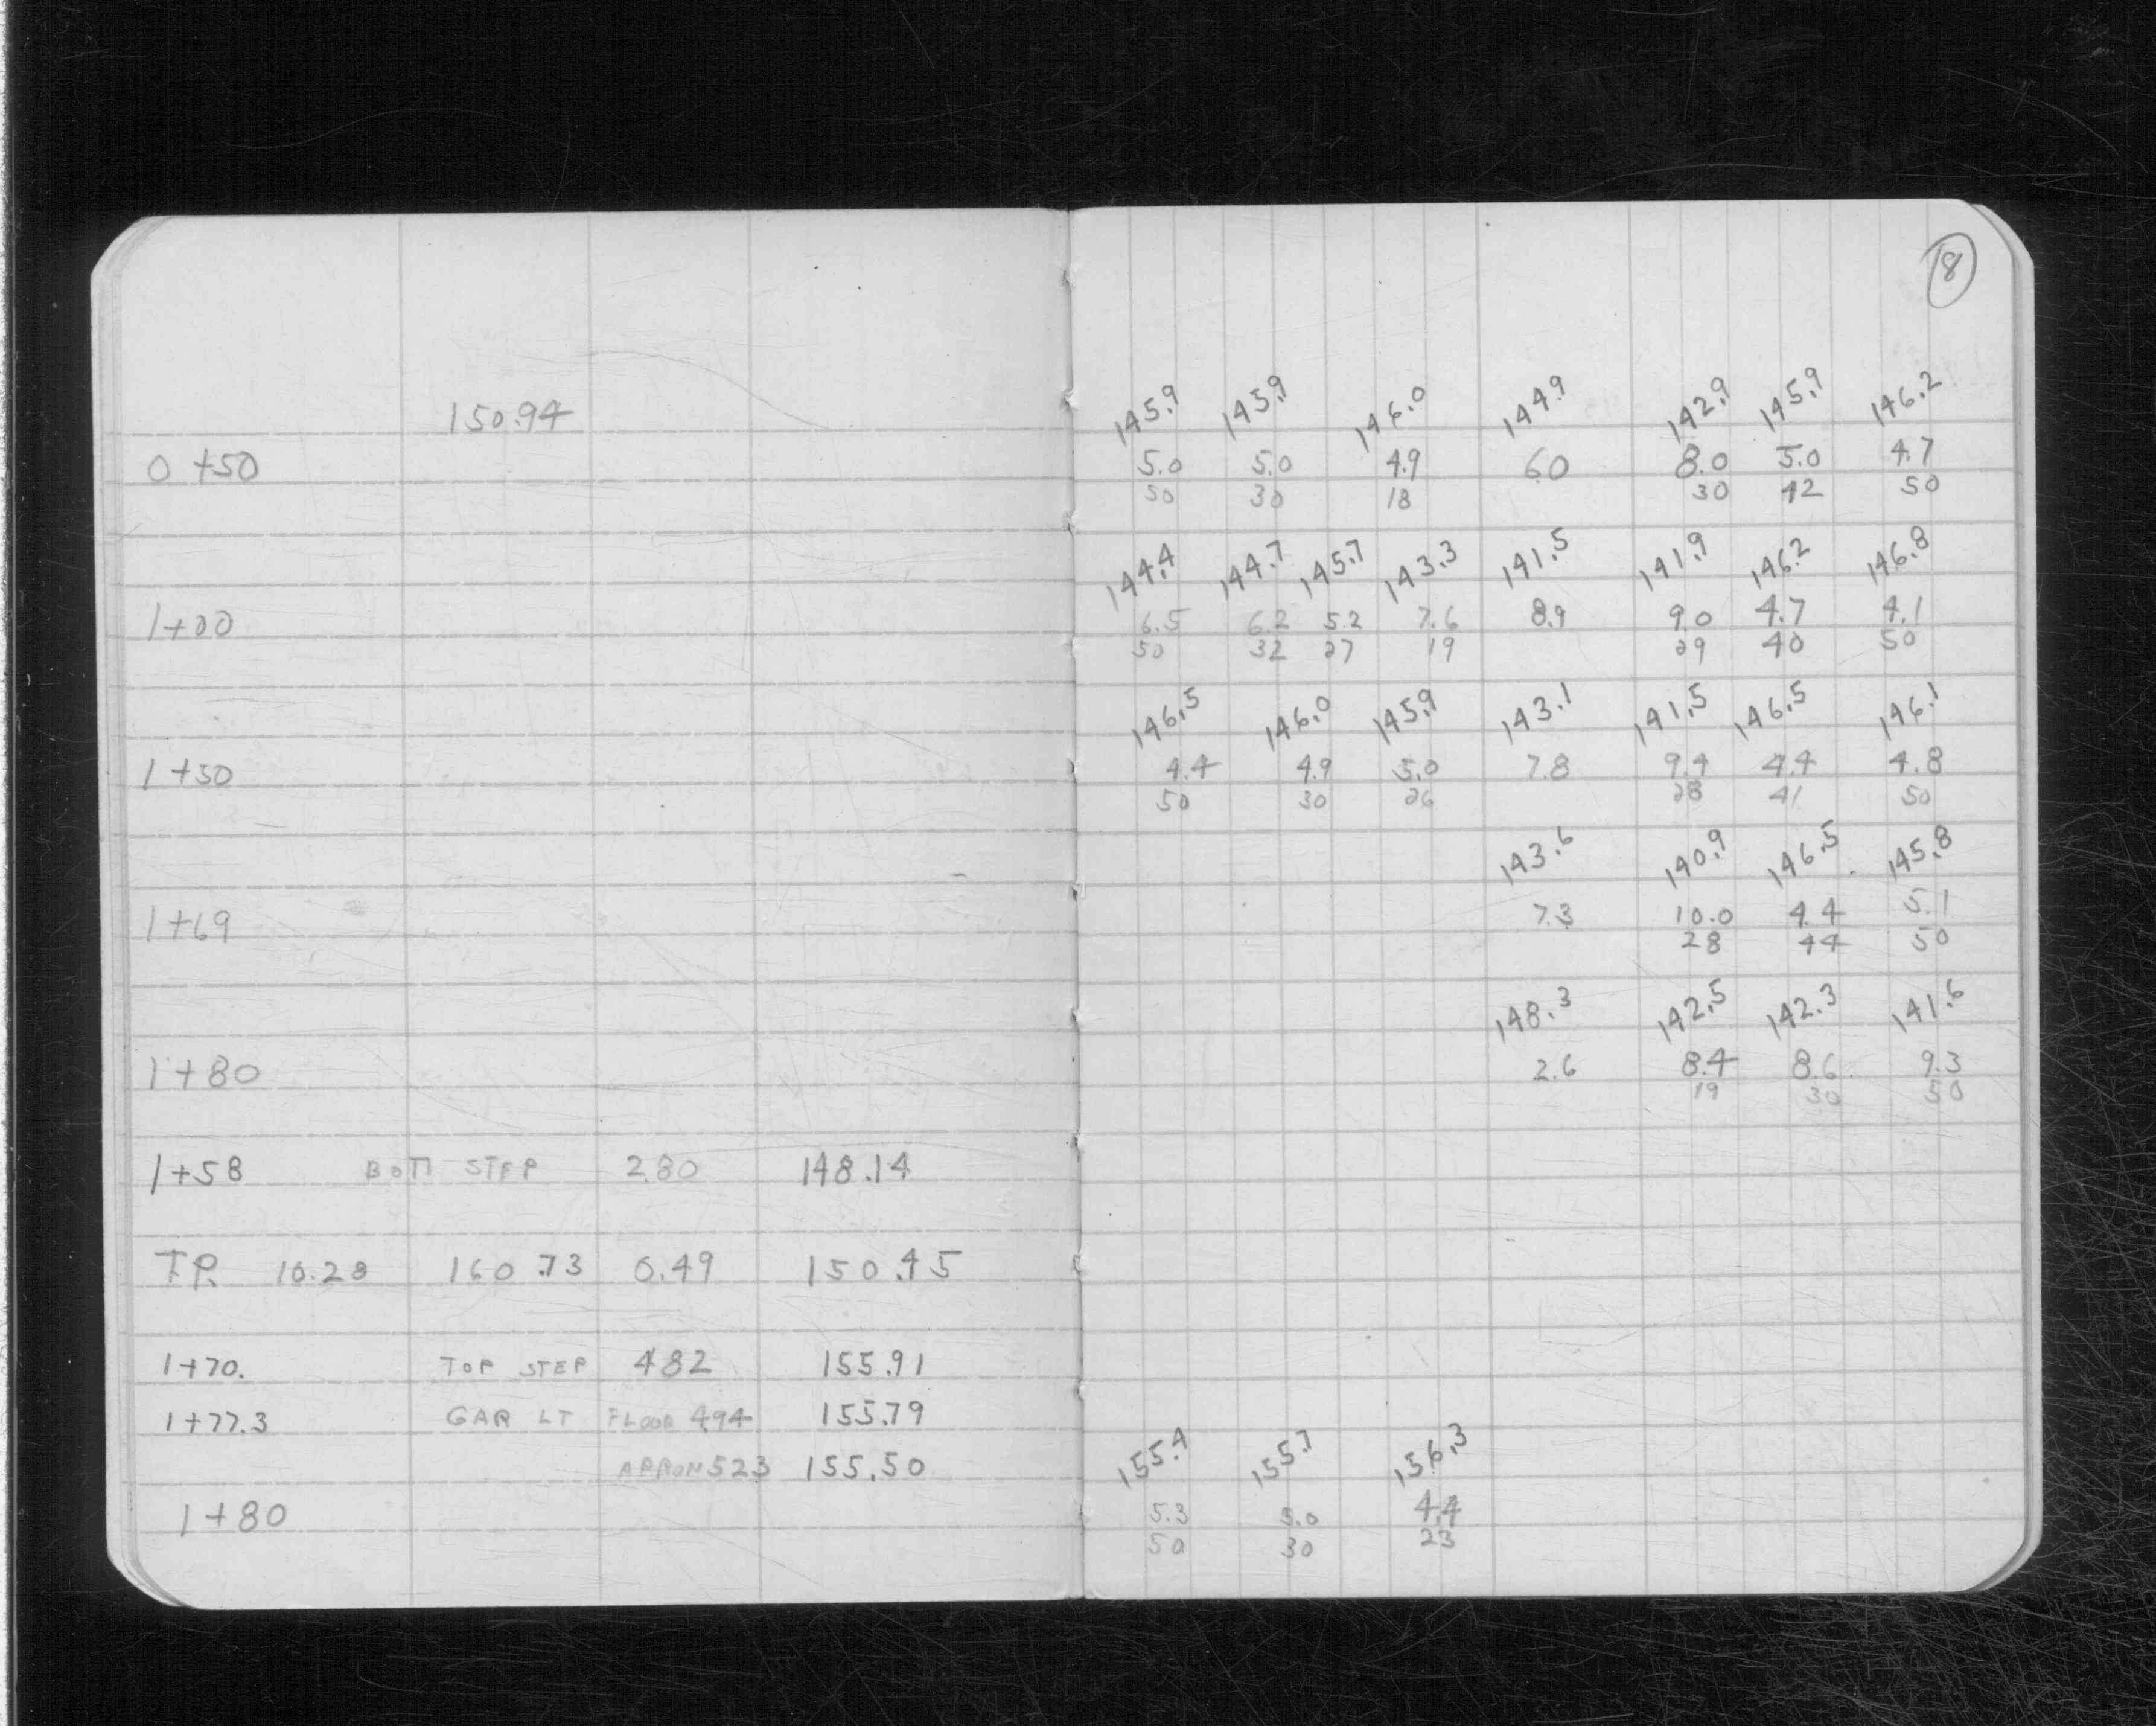 18
150.94 145.9 145.9 146.0 144.9 142.9 145.9 146.2
0+50 5.0 5.0 4.9 6.0 8.0 5.0 4.7
50 30 18 30 42 50
144.4 144.7 145.7 143.3 141.5 141.9 146.2 146.8
1+00 6.5 6.2 5.2 7.6 8.9 9.0 4.7 4.1
50 32 27 19 29 40 50
146.5 146.0 145.9 143.1 141.5 146.5 146.1
1+50 4.4 4.9 5.0 7.8 9.4 4.4 4.8
50 30 26 28 41 50
143.6 140.9 146.5 145.8
1+69 7.3 10.0 4.4 5.1
28 44 50
148.3 142.5 142.3 141.6
1+80 2.6 8.4 8.6 9.3
19 30 50
1+58 BOTT STEP 2.80 148.14
T.P. 10.28 160.73 0.49 150.45
1+70. TOP STEP 4.82 155.91
1+77.3 GAR LT FLOOR 4.94 155.79
APRON 523 155.50 155.4 155.7 156.3
1+80 5.3 5.0 4.4
50 30 23